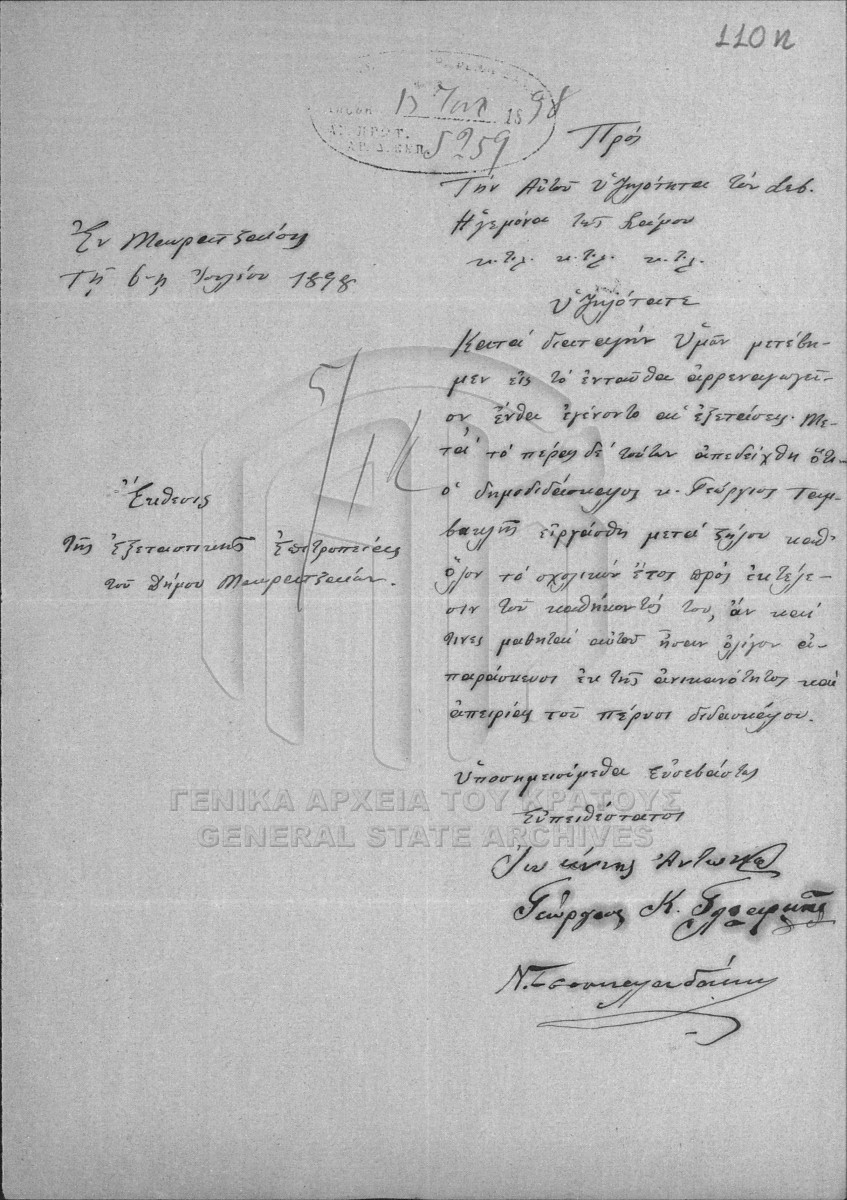 110 κ
13 Ιουλ 1898
ΑΡ. ΠΡΩΤ. 5259
ΑΡ. Δ. ΕΚΠ.
Πρός
Τὴν Αὐτοῦ Ὑψηλότητα τὸν Σεβ.
Ἡγεμόνα τῆς Σάμου
κ.τ.λ. κ.τ.λ. κ.τ.λ.
Ἐν Μαυρατζαίοις
Τῇ 6-ῃ Ἰουλίου 1898
Ὑψηλότατε
Κατὰ διαταγὴν Ὑμῶν μετέβη-
μεν εἰς τὸ ἐνταῦθα ἀρρεναγωγεῖ-
ον ἔνθα ἐγένοντο αἱ ἐξετάσεις. Με-
τὰ τὸ πέρας δὲ τούτων ἀπεδείχθη ὅτι
ὁ δημοδιδάσκαλος κ. Γεώργιος Ταμ-
βακλῆς εἰργάσθη μετὰ ζήλου καθ'
ὅλον τὸ σχολικὸν ἔτος πρὸς ἐκτέλε-
σιν τοῦ καθήκοντός του, ἂν καὶ
τινες μαθηταὶ αὐτοῦ ἦσαν ὀλίγον ἀ-
παράσκευοι ἐκ τῆς ἀνικανότητος καὶ
ἀπειρίας τοῦ πέρυσι διδασκάλου.
Ἔκθεσις
τῆς Ἐξεταστικῆς Ἐπιτροπείας
τοῦ Δήμου Μαυρατζαίων.
Ὑποσημειούμεθα εὐσεβάστως
Εὐπειθέστατοι
Ἰωάννης Ἀντωνίου
Γεώργιος Κ.
Ν. Τσουκαλαδάκης
ΓΕΝΙΚΑ ΑΡΧΕΙΑ ΤΟΥ ΚΡΑΤΟΥΣ
GENERAL STATE ARCHIVES